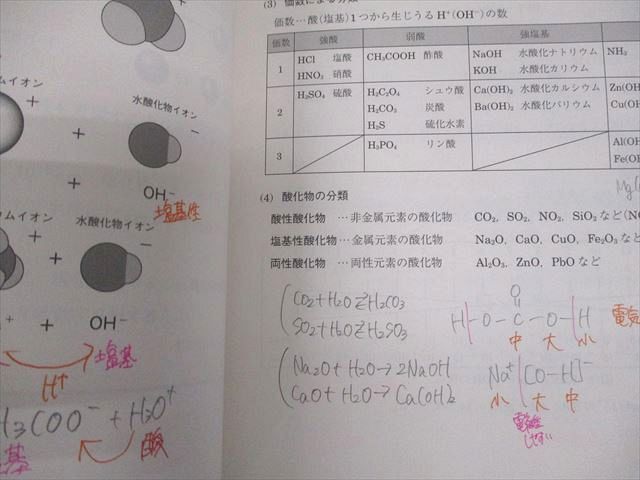 ムイオン
水酸化物イオン
+
+
−
OH⁻
塩基性
ウムイオン
水酸化物イオン
+
+
−
+
+
OH⁻
塩基
H⁺
H₃COO⁻ + H₃O⁺
基
酸
(3) 価数による分類
価数…酸(塩基)1つから生じうる H⁺(OH⁻)の数
価数 強酸 弱酸 強塩基
1 HCl 塩酸 CH₃COOH 酢酸 NaOH 水酸化ナトリウム NH₃
HNO₃ 硝酸 KOH 水酸化カリウム
2 H₂SO₄ 硫酸 H₂C₂O₄ シュウ酸 Ca(OH)₂ 水酸化カルシウム Zn(OH
H₂CO₃ 炭酸 Ba(OH)₂ 水酸化バリウム Cu(OH
H₂S 硫化水素
3 H₃PO₄ リン酸 Al(OH
Fe(OH
Mg(
(4) 酸化物の分類
酸性酸化物 …非金属元素の酸化物 CO₂, SO₂, NO₂, SiO₂ など(NO
塩基性酸化物…金属元素の酸化物 Na₂O, CaO, CuO, Fe₂O₃ など
両性酸化物 …両性元素の酸化物 Al₂O₃, ZnO, PbO など
CO₂+H₂O⇄H₂CO₃
SO₂+H₂O⇄H₂SO₃
O
H-O-C-O-H
中 大 小
電気
Na₂O+H₂O→2NaOH
CaO+H₂O→Ca(OH)₂
Na⁺[O-H]⁻
小 大 中
しやすい